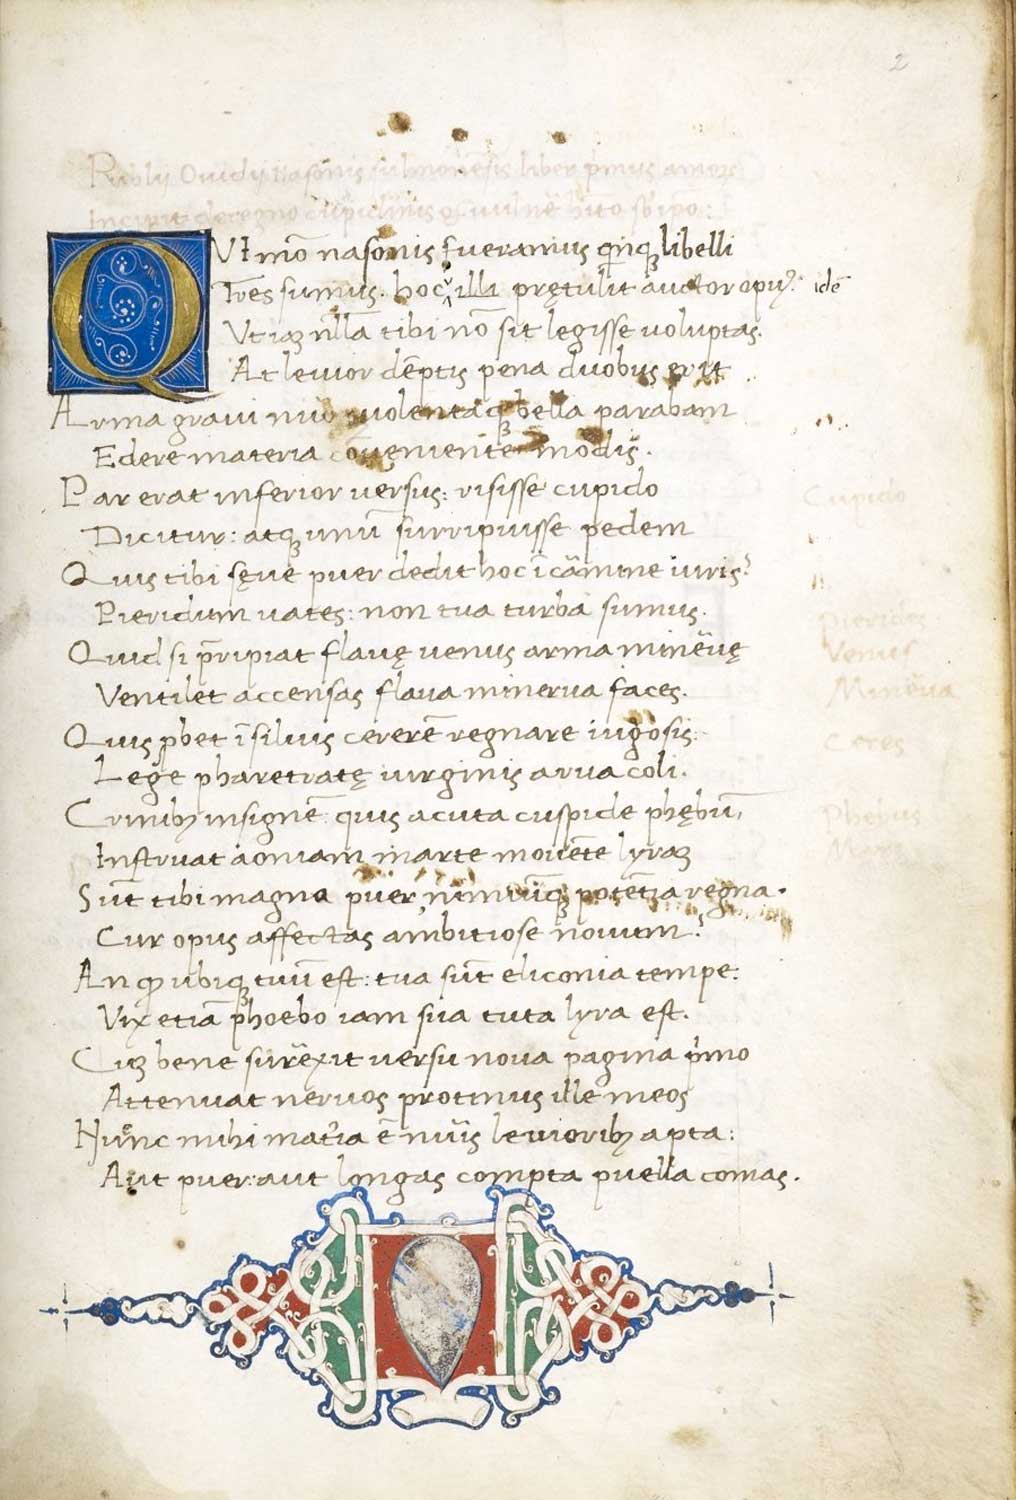 2
Publii Ouidii Nasonis sulmonēsis liber p̄mus amor̄
Incipit: de regno cupidinis
QVI mō nasonis fueramus qinq libelli
Tres sumus. hoc illi prętulit auctor opꝰ: idē
Vt iaꝫ nlla tibi nō sit legisse voluptas.
At leuior dēptis pena duobus erit
Arma graui nūo uiolentaqꝫ bella parabam
Edere materia cōueniente modis.
Par erat inferior versus: risisse cupido
Dicitur: atqꝫ unū surripuisse pedem
Quis tibi sęue puer dedit hoc ī cāmine iuris?
Pieridum uates: non tua turba sumus.
Quid si p̄ripiat flauę venus arma mineruę
Ventilet accensas flaua minerua faces.
Quis ꝓbet ī siluis cererē regnare iugosis:
Lege pharetratę uirginis arua coli.
Crinibꝫ insignē quis acuta cuspide phębū,
Instruat aoniam marte mouēte lyraꝫ
Sūt tibi magna puer, nimiūqꝫ potētia regna.
Cur opus affectas ambitiose nouum?
An ꝙ ubiqꝫ tuū est: tua sūt eliconia tempe:
Vix etiā phoebo iam sua tuta lyra est.
Cuꝫ bene surrexit uersu noua pagina p̄mo
Attenuat neruos protinus ille meos
Nunc mihi mat̄ia ē nūis leuioribꝫ apta:
Aut puer: aut longas compta puella comas.
Cupido
Pierides
Venus
Minerua
Ceres
Phebus